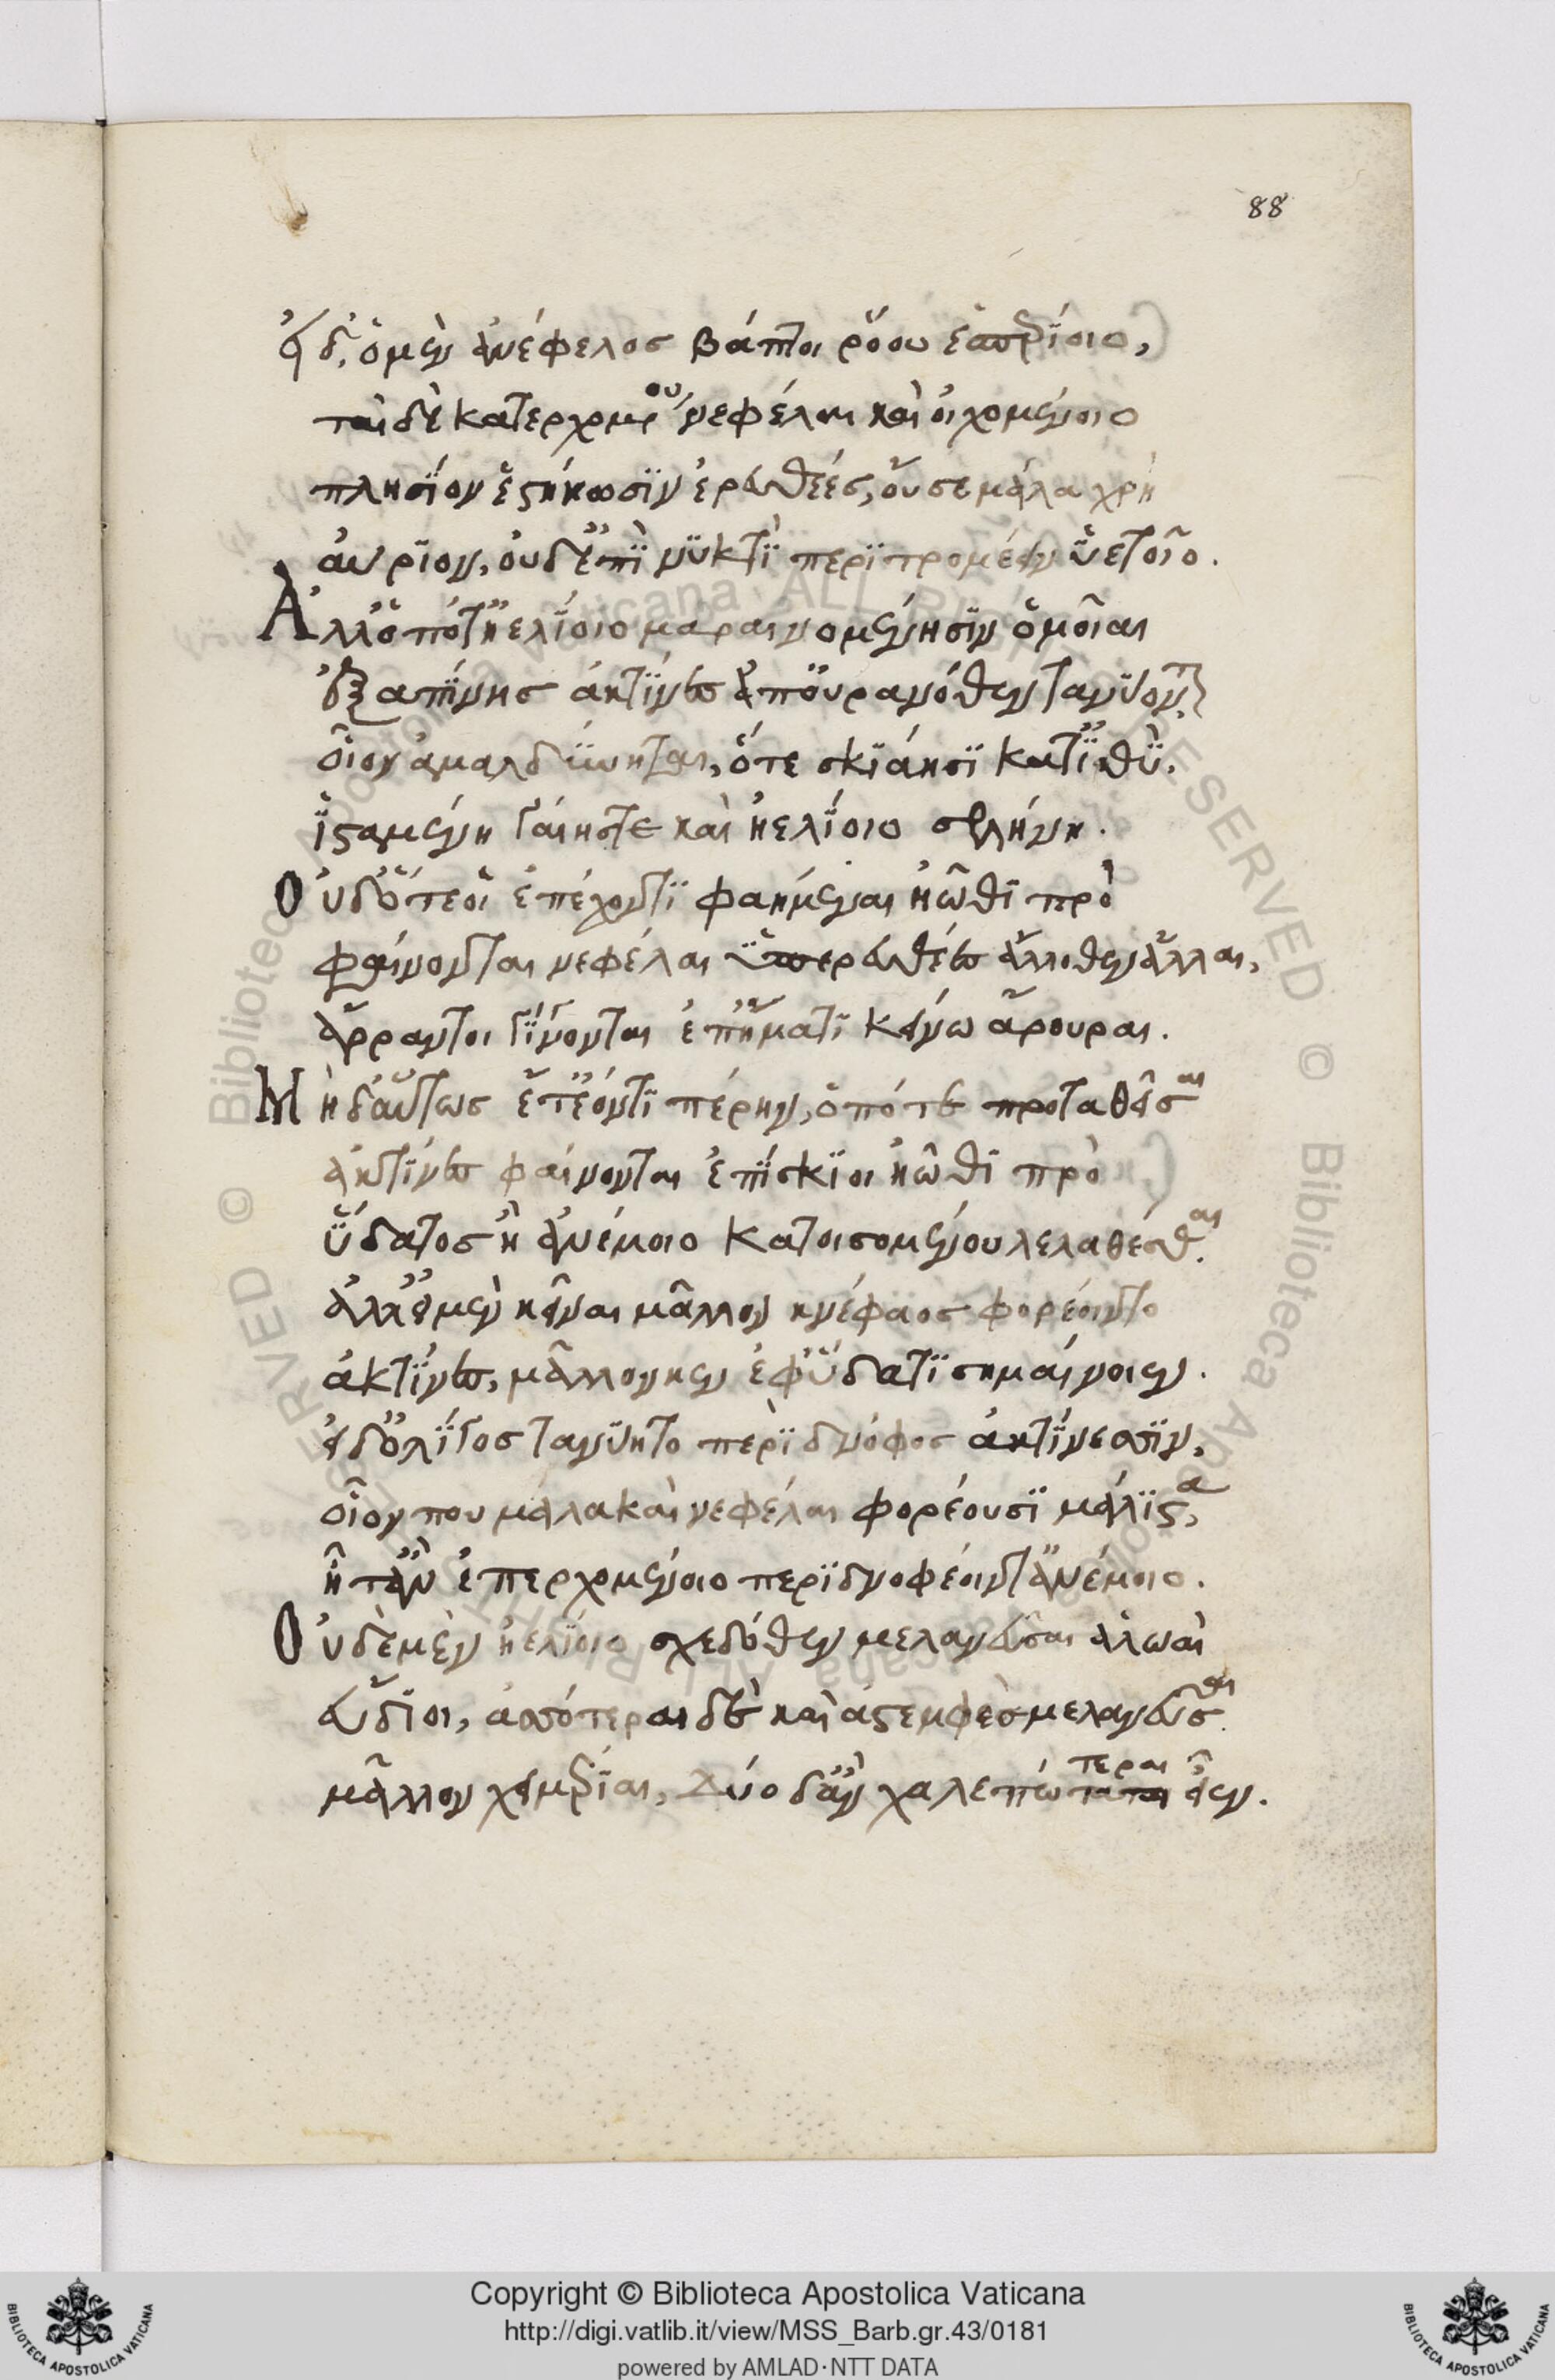 88
εἰ δ' ὁ μὲν ἀνέφελος βάπτοι ῥόου ἑσπερίοιο,
ταὶ δὲ κατερχομένου νεφέλαι καὶ οἰχομένοιο
πλησίον ἑστήκωσιν ἐρευθέες, οὔ σε μάλα χρὴ
αὔριον, οὐδ' ἐπὶ νυκτὶ περιτρομέειν ὑετοῖο.
Ἀλλ' ὁπότ' ἠελίοιο μαραινομένησιν ὁμοῖαι
ἐξαπίνης ἀκτῖνες ἀπ' οὐρανόθεν τανύονται
οἷον ἀμαλδύνηται, ὅτε σκιάησι κατ' ἰθὺ,
ἱσταμένη γαίης τε καὶ ἠελίοιο σελήνη.
Οὐδ' ὅτε οἱ ἐπέχοντι φανήμεναι ἠῶθι πρὸ
φαίνονται νεφέλαι ὑπερευθέες ἄλλοθεν ἄλλαι,
ἄρραντοι γίνονται ἐπ' ἤματι κείνω ἄρουραι.
Μηδ' αὔτως ἔτ' ἐόντι πέρην, ὁπότε προταθεῖσαι
ἀκτῖνες φαίνονται ἐπίσκιοι ἠῶθι πρὸ
ὕδατος ἢ ἀνέμοιο κατοισομένου λελαθέσθαι.
ἀλλ' εἰ μὲν κεῖναι μᾶλλον κνέφαος φορέοιντο
ἀκτῖνες, μᾶλλόν κεν ἐφ' ὕδατι σημαίνοιεν.
εἰ δ' ὀλίγος τανύητο περὶ δνόφος ἀκτίνεσσιν,
οἷόν που μάλακαὶ νεφέλαι φορέουσι μάλιστα,
ἦ τ' ἂν ἐπερχομένοιο περιδνοφέοιντ' ἀνέμοιο.
Οὐδὲ μὲν ἠελίοιο σχεδόθεν μελανεῦσαι ἀλωαὶ
εὔδιοι, ἀσσότεραι δὲ καὶ ἀστεμφὲς μελανεῦσαι
μᾶλλον χειμέριαι, δύο δ' ἂν χαλεπώτεραι εἶεν.
Copyright © Biblioteca Apostolica Vaticana
http://digi.vatlib.it/view/MSS_Barb.gr.43/0181
powered by AMLAD·NTT DATA